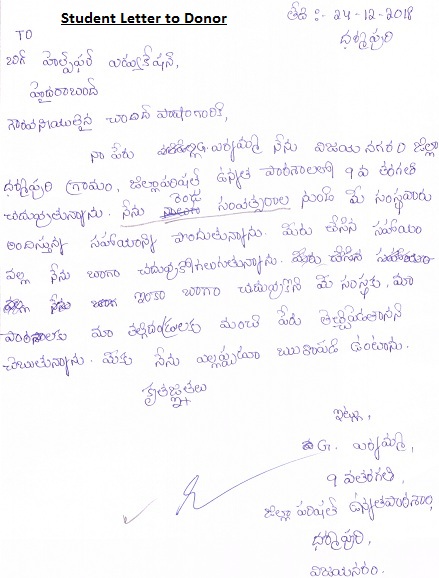 Student Letter to Donor
తేది :- 24-12-2018
ధర్మపురి
TO
బిగ్ హెల్ప్‌ఫర్ ఎడ్యుకేషన్,
హైదరాబాద్
గౌరవనీయులైన
నా పేరు G. నేను విజయనగరం జిల్లా
ధర్మపురి గ్రామం, జిల్లాపరిషత్ ఉన్నత పాఠశాలలో 9 వ తరగతి
చదువుతున్నాను. నేను రెండు సంవత్సరాల నుండి మీ సంస్థవారు
అందిస్తున్న సహాయాన్ని పొందుతున్నాను. మీరు చేసిన సహాయం
వల్ల నేను బాగా చదువుకోగలుగుతున్నాను. మీరు చేసిన
నేను ఇంకా బాగా చదువుకుని మీ సంస్థకు, మా
పాఠశాలకు మా తల్లిదండ్రులకు మంచి పేరు
చెబుతున్నాను. మీకు నేను ఎల్లప్పుడూ ఋణపడి ఉంటాను.
కృతజ్ఞతలు
ఇట్లు,
G.
9 వతరగతి,
జిల్లా పరిషత్ ఉన్నతపాఠశాల,
ధర్మపురి,
విజయనగరం.